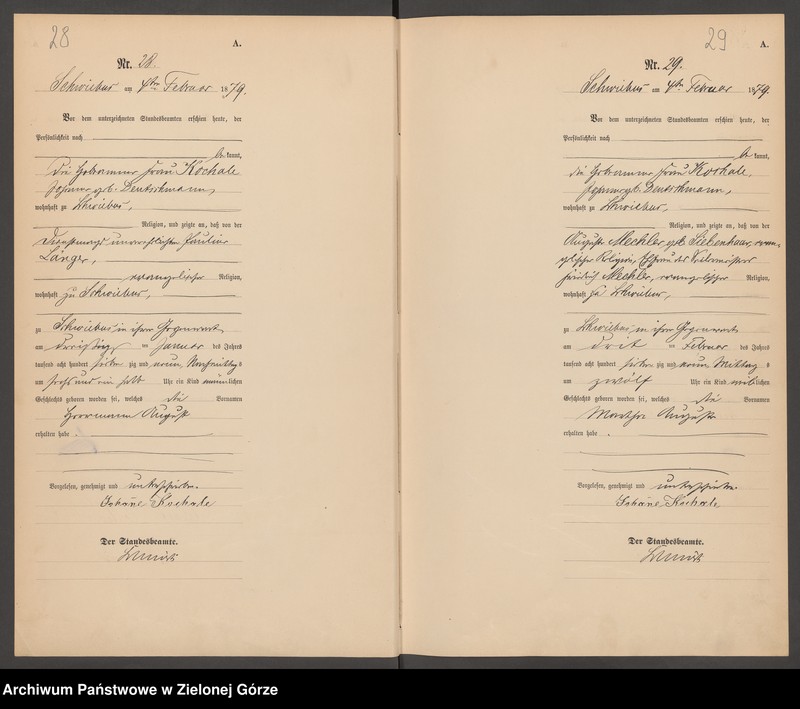 28
A.
Nr. 28.
Schwiebus am 4ten Februar 1879.
Vor dem unterzeichneten Standesbeamten erschien heute, der
Persönlichkeit nach
be kannt,
die Hebamme Frau Kochale
Johanne geb. Deutschmann,
wohnhaft zu Schwiebus,
Religion, und zeigte an, daß von der
unverehelichten Pauline
Länger,
evangelischer Religion,
wohnhaft zu Schwiebus,
zu Schwiebus in ihrer Gegenwart
am dreißigsten Januar des Jahres
tausend acht hundert sieben zig und neun, Nachmittags
um sechs und ein halb Uhr ein Kind männlichen
Geschlechts geboren worden sei, welches die Vornamen
Herrmann August
erhalten habe.
Vorgelesen, genehmigt und unterschrieben.
Johane Kochale
Der Standesbeamte.
29
A.
Nr. 29.
Schwiebus am 4ten Februar 1879.
Vor dem unterzeichneten Standesbeamten erschien heute, der
Persönlichkeit nach
be kannt,
die Hebamme Frau Kochale,
Johanne geb. Deutschmann,
wohnhaft zu Schwiebus,
Religion, und zeigte an, daß von der
Auguste Mechler geb. Siebenhaar, evan-
gelischer Religion, Ehefrau des
Friedrich Mechler, evangelischer Religion,
wohnhaft zu Schwiebus,
zu Schwiebus in ihrer Gegenwart
am drit ten Februar des Jahres
tausend acht hundert sieben zig und neun Mittag s
um zwölf Uhr ein Kind weiblichen
Geschlechts geboren worden sei, welches die Vornamen
Martha Auguste
erhalten habe.
Vorgelesen, genehmigt und unterschrieben.
Johane Kochale
Der Standesbeamte.
Archiwum Państwowe w Zielonej Górze